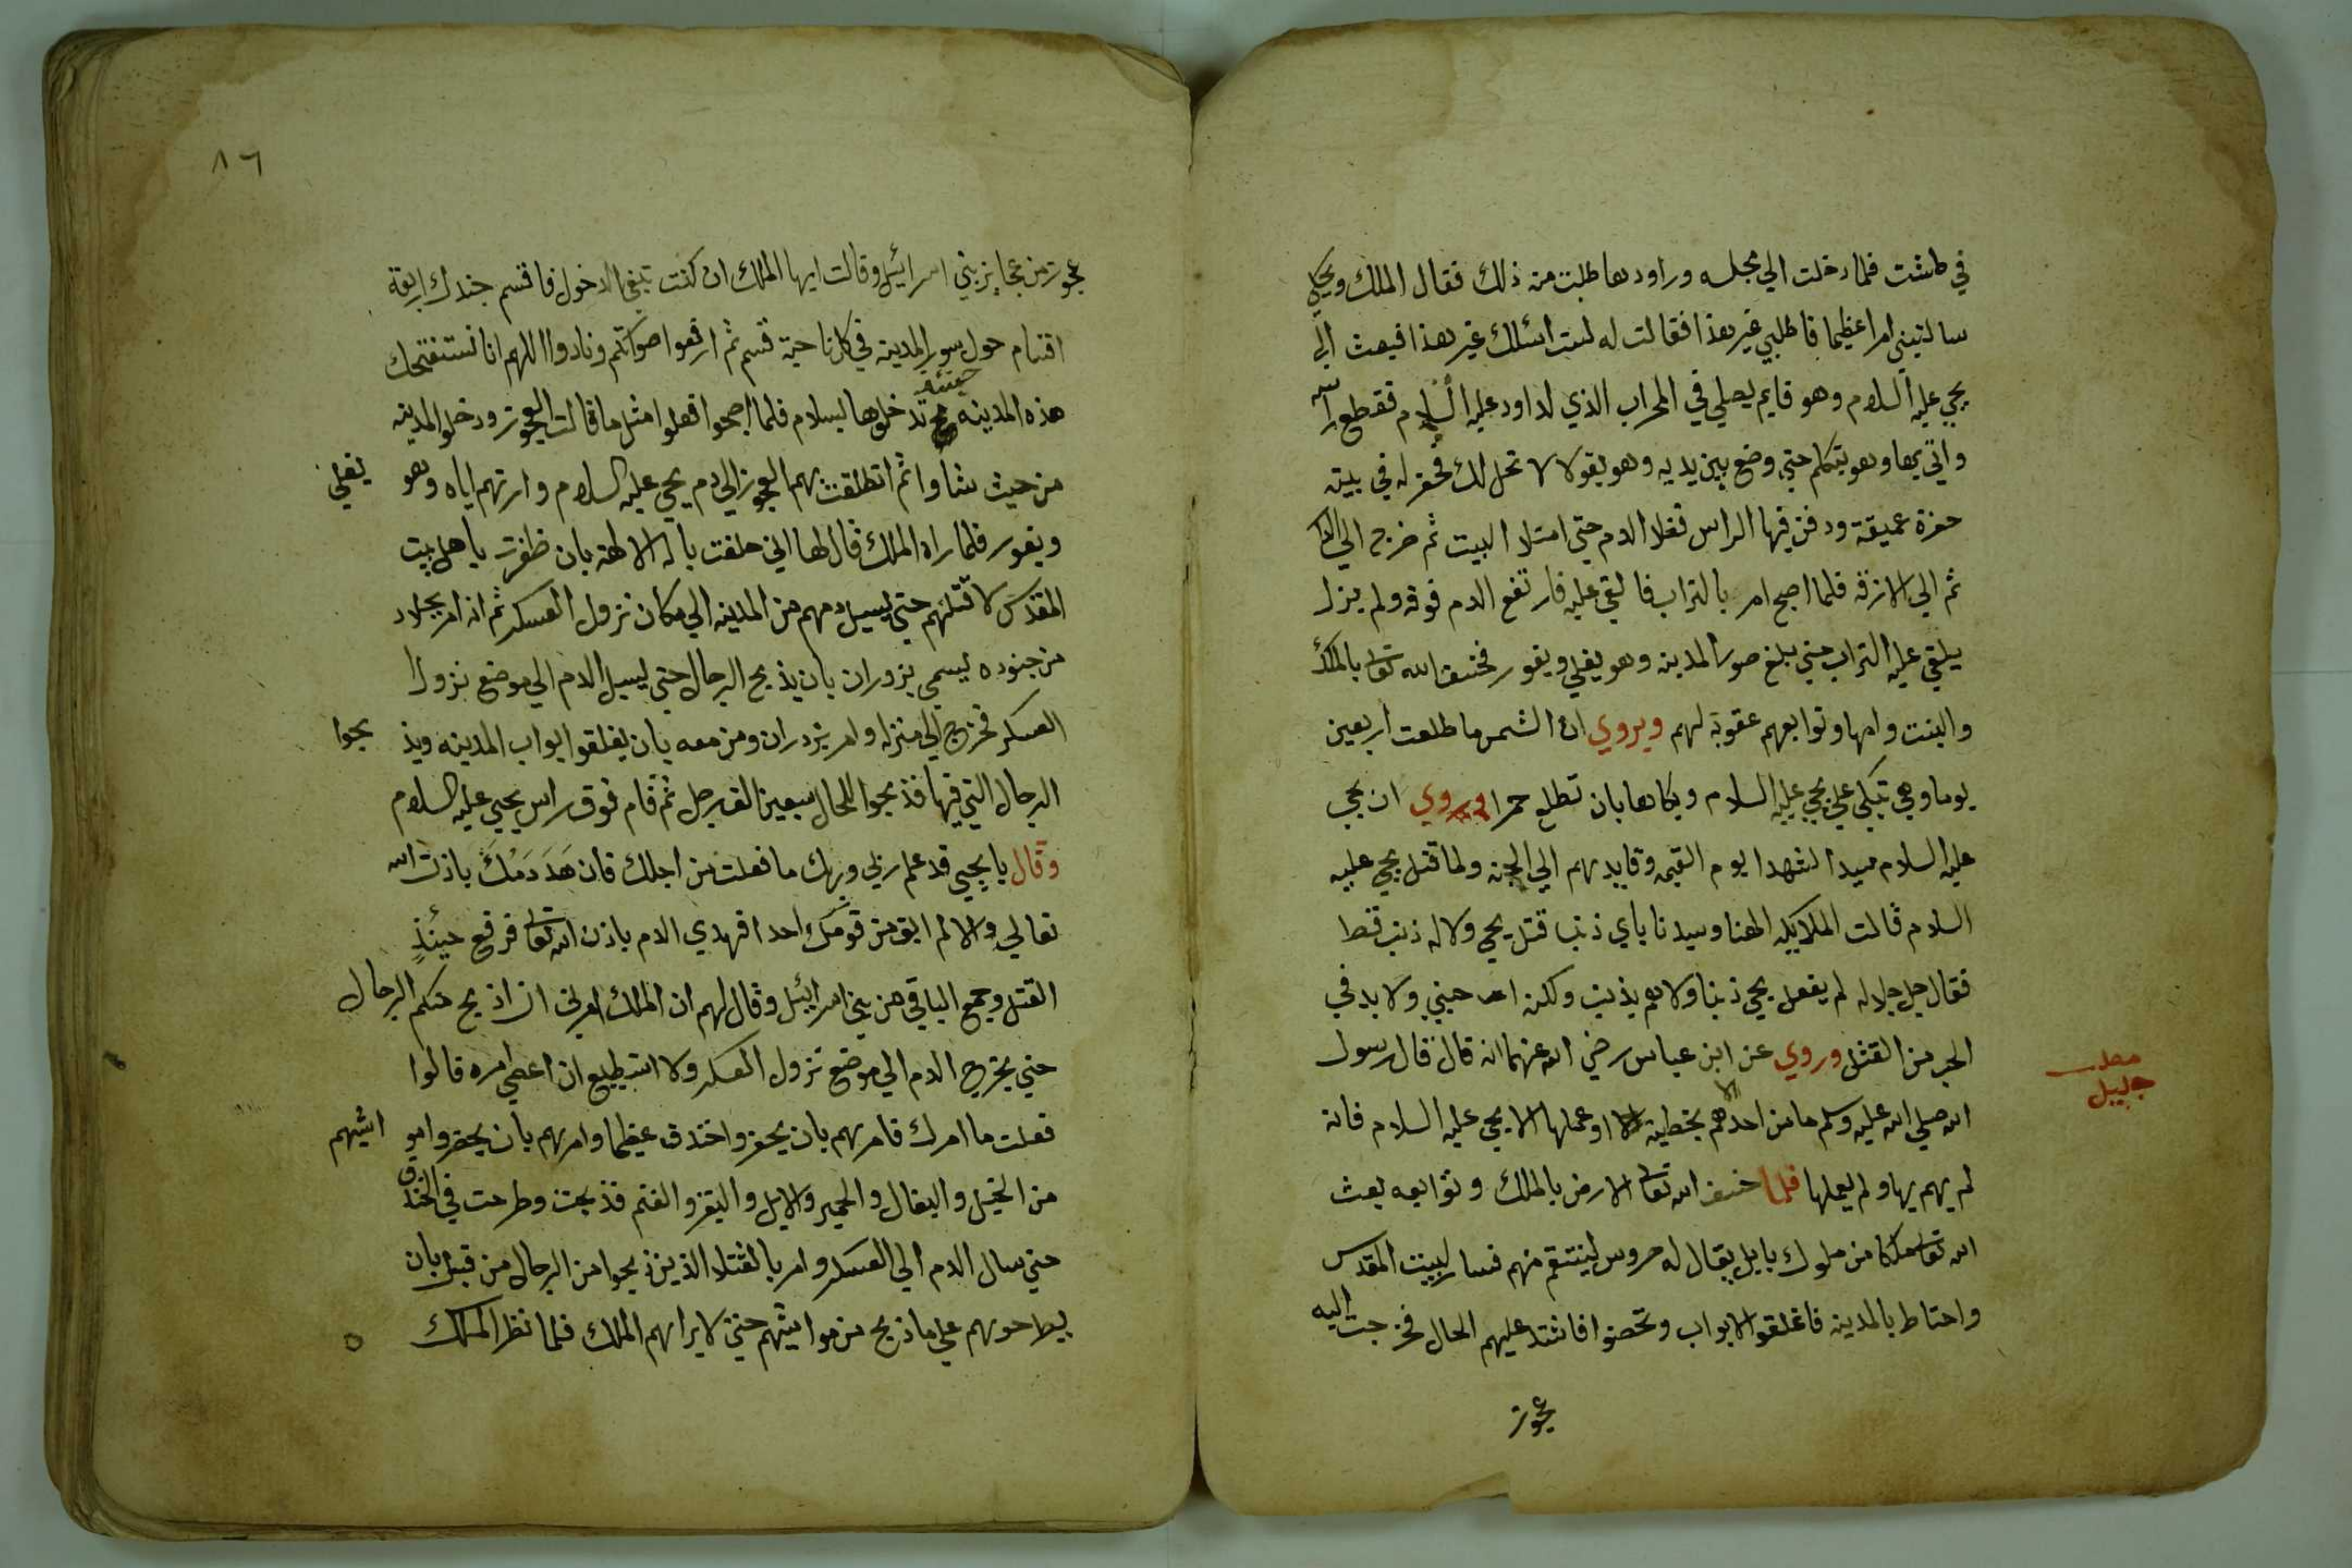 في طشت فلما دخلت الي مجلسه وراودها طلبت منه ذلك فقال الملك ويحكي
سالتيني امرا عظيما فاطلبي غير هذا فقالت له لست اسئلك غير هذا فبعث الي
يحيي عليه السلام وهو قايم يصلي في المحراب الذي لداود عليه السلام فقطع راسه
واتي بها وهو يتكلم حتي وضع بين يديه وهو يقول لا تحل لك فحفر له في بيته
حفرة عميقة ودفن فيها الراس فغلا الدم حتي امتلا البيت ثم خرج الي
ثم الي الازقة فلما اصبح امر بالتراب فالقي عليه فارتفع الدم فوقه ولم يزل
يلقي عليه التراب حتي بلغ صور المدينه وهو يغلي ويفور فخسف الله تعالى بالملك
والبنت وامها وتوابعهم عقوبة لهم ويروي ان الشمس ما طلعت اربعين
يوما وهي تبكي علي يحيي عليه السلام وبكاها بان تطلع حمرا ويروي ان يحيي
عليه السلام سيد الشهدا يوم القيمه وقايدهم الي الجنه ولما قتل يحيي عليه
السلام قالت الملايكه الهنا وسيدنا باي ذنب قتل يحيي ولا له ذنب قط
فقال جل جلاله لم يفعل يحيي ذنبا ولا هم بذنب ولكن احبني ولا بد في
الحب من القتل وروي عن ابن عباس رضي الله عنهما انه قال قال رسول
الله صلي الله عليه وسلم ما من احد الا هم بخطيئة او عملها الا يحيي عليه السلام فانه
لم يهم بها ولم يعملها فلما خسف الله تعالى الارض بالملك وتوابعه بعث
الله تعالى ملكا من ملوك بابل يقال له حروس لينتقم منهم فسار لبيت المقدس
واحتاط بالمدينه فاغلقوا الابواب وتحصنوا فاشتد عليهم الحال فخرجت اليه
عجوز
مطلب
جليل
٨٦
عجوز من عجايز بني اسرائيل وقالت ايها الملك ان كنت تبغي الدخول فاقسم جندك اربعة
اقسام حول سور المدينه في كل ناحية قسم ثم ارفعوا اصواتكم ونادوا اللهم انا نستفتحك
هذه المدينه حينئذ تدخلوها بسلام فلما اصبحوا فعلوا مثل ما قالت العجوز ودخلوا المدينه
من حيث شاوا ثم انطلقت بهم العجوز الي دم يحيي عليه السلام وارتهم اياه وهو يغلي
ويفور فلما راه الملك قال لها اني حلفت باله الالهة بان ظفرت باهل بيت
المقدس لاقتلنهم حتي يسيل دمهم من المدينه الي مكان نزول العسكر ثم انه امر بجلاد
من جنوده يسمي بزوران بان يذبح الرجال حتي يسيل الدم الي موضع نزول
العسكر فخرج الي منزله وامر بزدران ومن معه بان يغلقوا ابواب المدينه ويذبحوا
الرجال التي فيها فذبحوا للحال سبعين الف رجل ثم قام فوق راس يحيي عليه السلام
وقال يا يحيي قد علم ربي وربك ما فعلت من اجلك فان هَدَ دَمُكَ باذن الله
تعالي والا لم ابق من قومك احدا فهدي الدم باذن الله تعالى فرفع حينئذٍ
القتل وجمع الباقي من بني اسرائيل وقال لهم ان الملك امرني ان اذبح منكم الرجال
حتي يخرج الدم الي موضع نزول العسكر ولا استطيع ان اعصي امره قالوا
فعلت ما امرك فامرهم بان يحفروا خندق عظيما وامرهم بان يحضروا مواشيهم
من الخيل والبغال والحمير والابل والبقر والغنم فذبحت وطرحت في الخندق
حتي سال الدم الي العسكر وامر بالقتلا الذين ذبحوا من الرجال من قبل بان
يطرحوهم علي ما ذبح من مواشيهم حتي لا يراهم الملك فلما نظر الملك